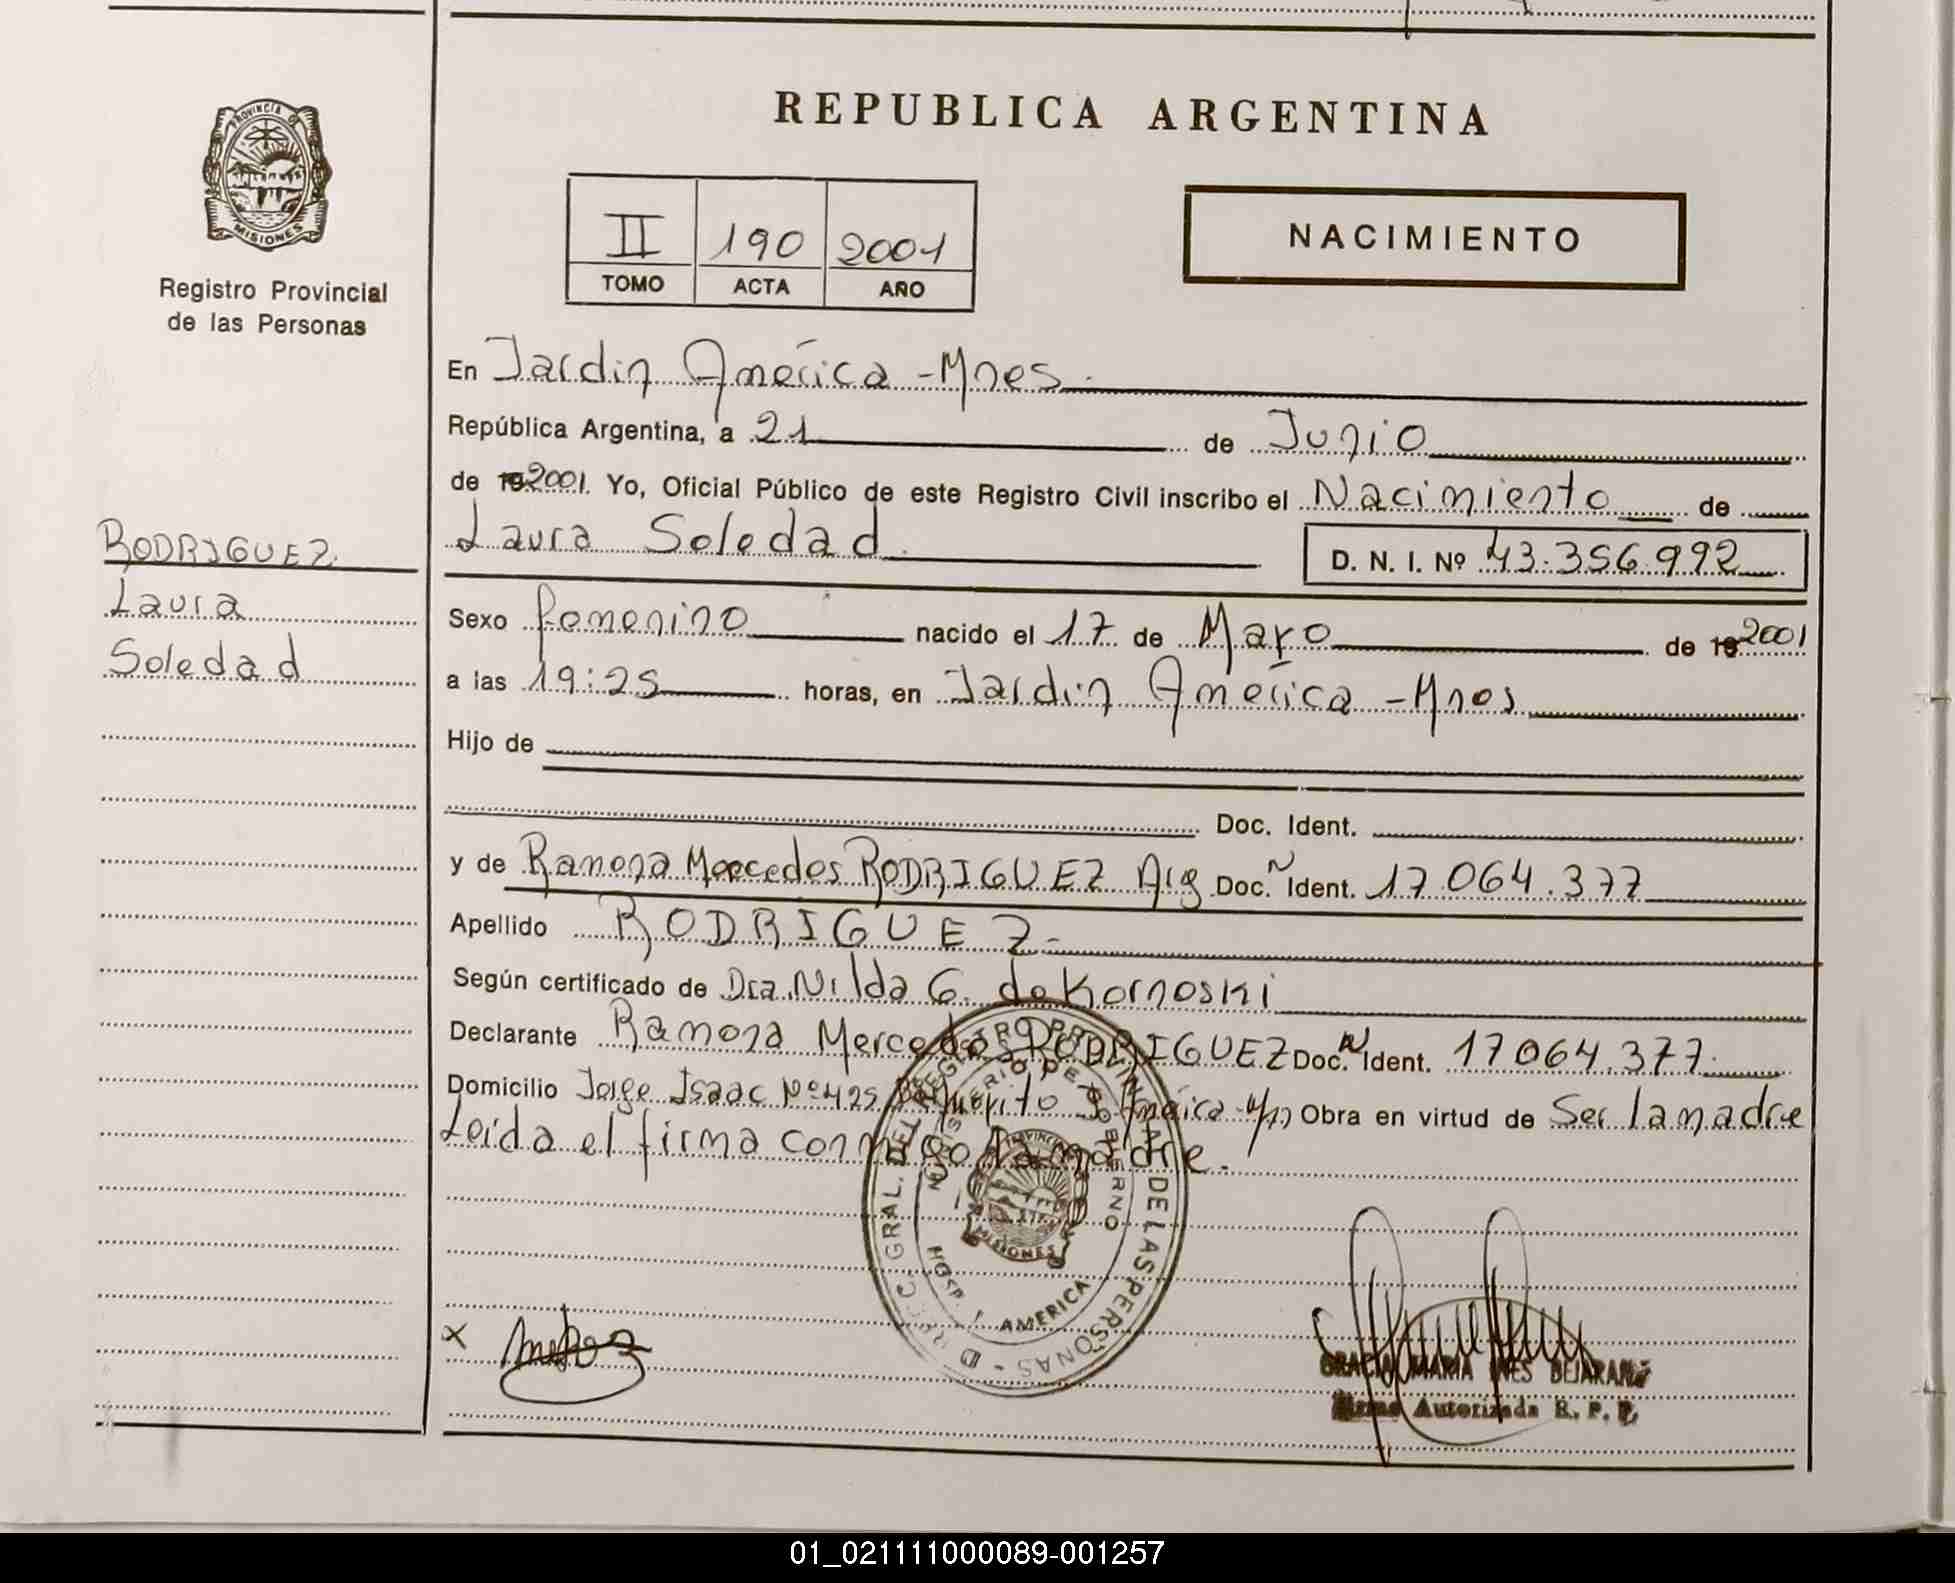 PROVINCIA DE
MISIONES
Registro Provincial
de las Personas
RODRIGUEZ
Laura
Soledad
REPUBLICA ARGENTINA
II 190 2001
TOMO ACTA AÑO
NACIMIENTO
En Jardin América - Mnes.
República Argentina, a 21 de Junio
de 19 2001. Yo, Oficial Público de este Registro Civil inscribo el Nacimiento de
Laura Soledad D. N. I. Nº 43.356.992
Sexo femenino nacido el 17 de Mayo de 19 2001
a las 19:25 horas, en Jardin América - Mnes
Hijo de
Doc. Ident.
y de Ramona Mercedes RODRIGUEZ Arg Doc. N Ident. 17.064.377
Apellido RODRIGUEZ -
Según certificado de Dra. Nilda G. de Kornoski
Declarante Ramona Mercedes RODRIGUEZ Doc. N Ident. 17064.377.
Domicilio Jorge Isaac Nº 425 J. América Obra en virtud de Ser la madre
Leída el firma conmigo la madre.
DIREC. GRAL. DEL REGISTRO PROVINCIAL DE LAS PERSONAS
MINISTERIO DE GOBIERNO
PROVINCIA
MISIONES
HOSP. J. AMERICA
X
GRACIA MARIA INES BEJARANO
Firma Autorizada R. P. P.
01_021111000089-001257